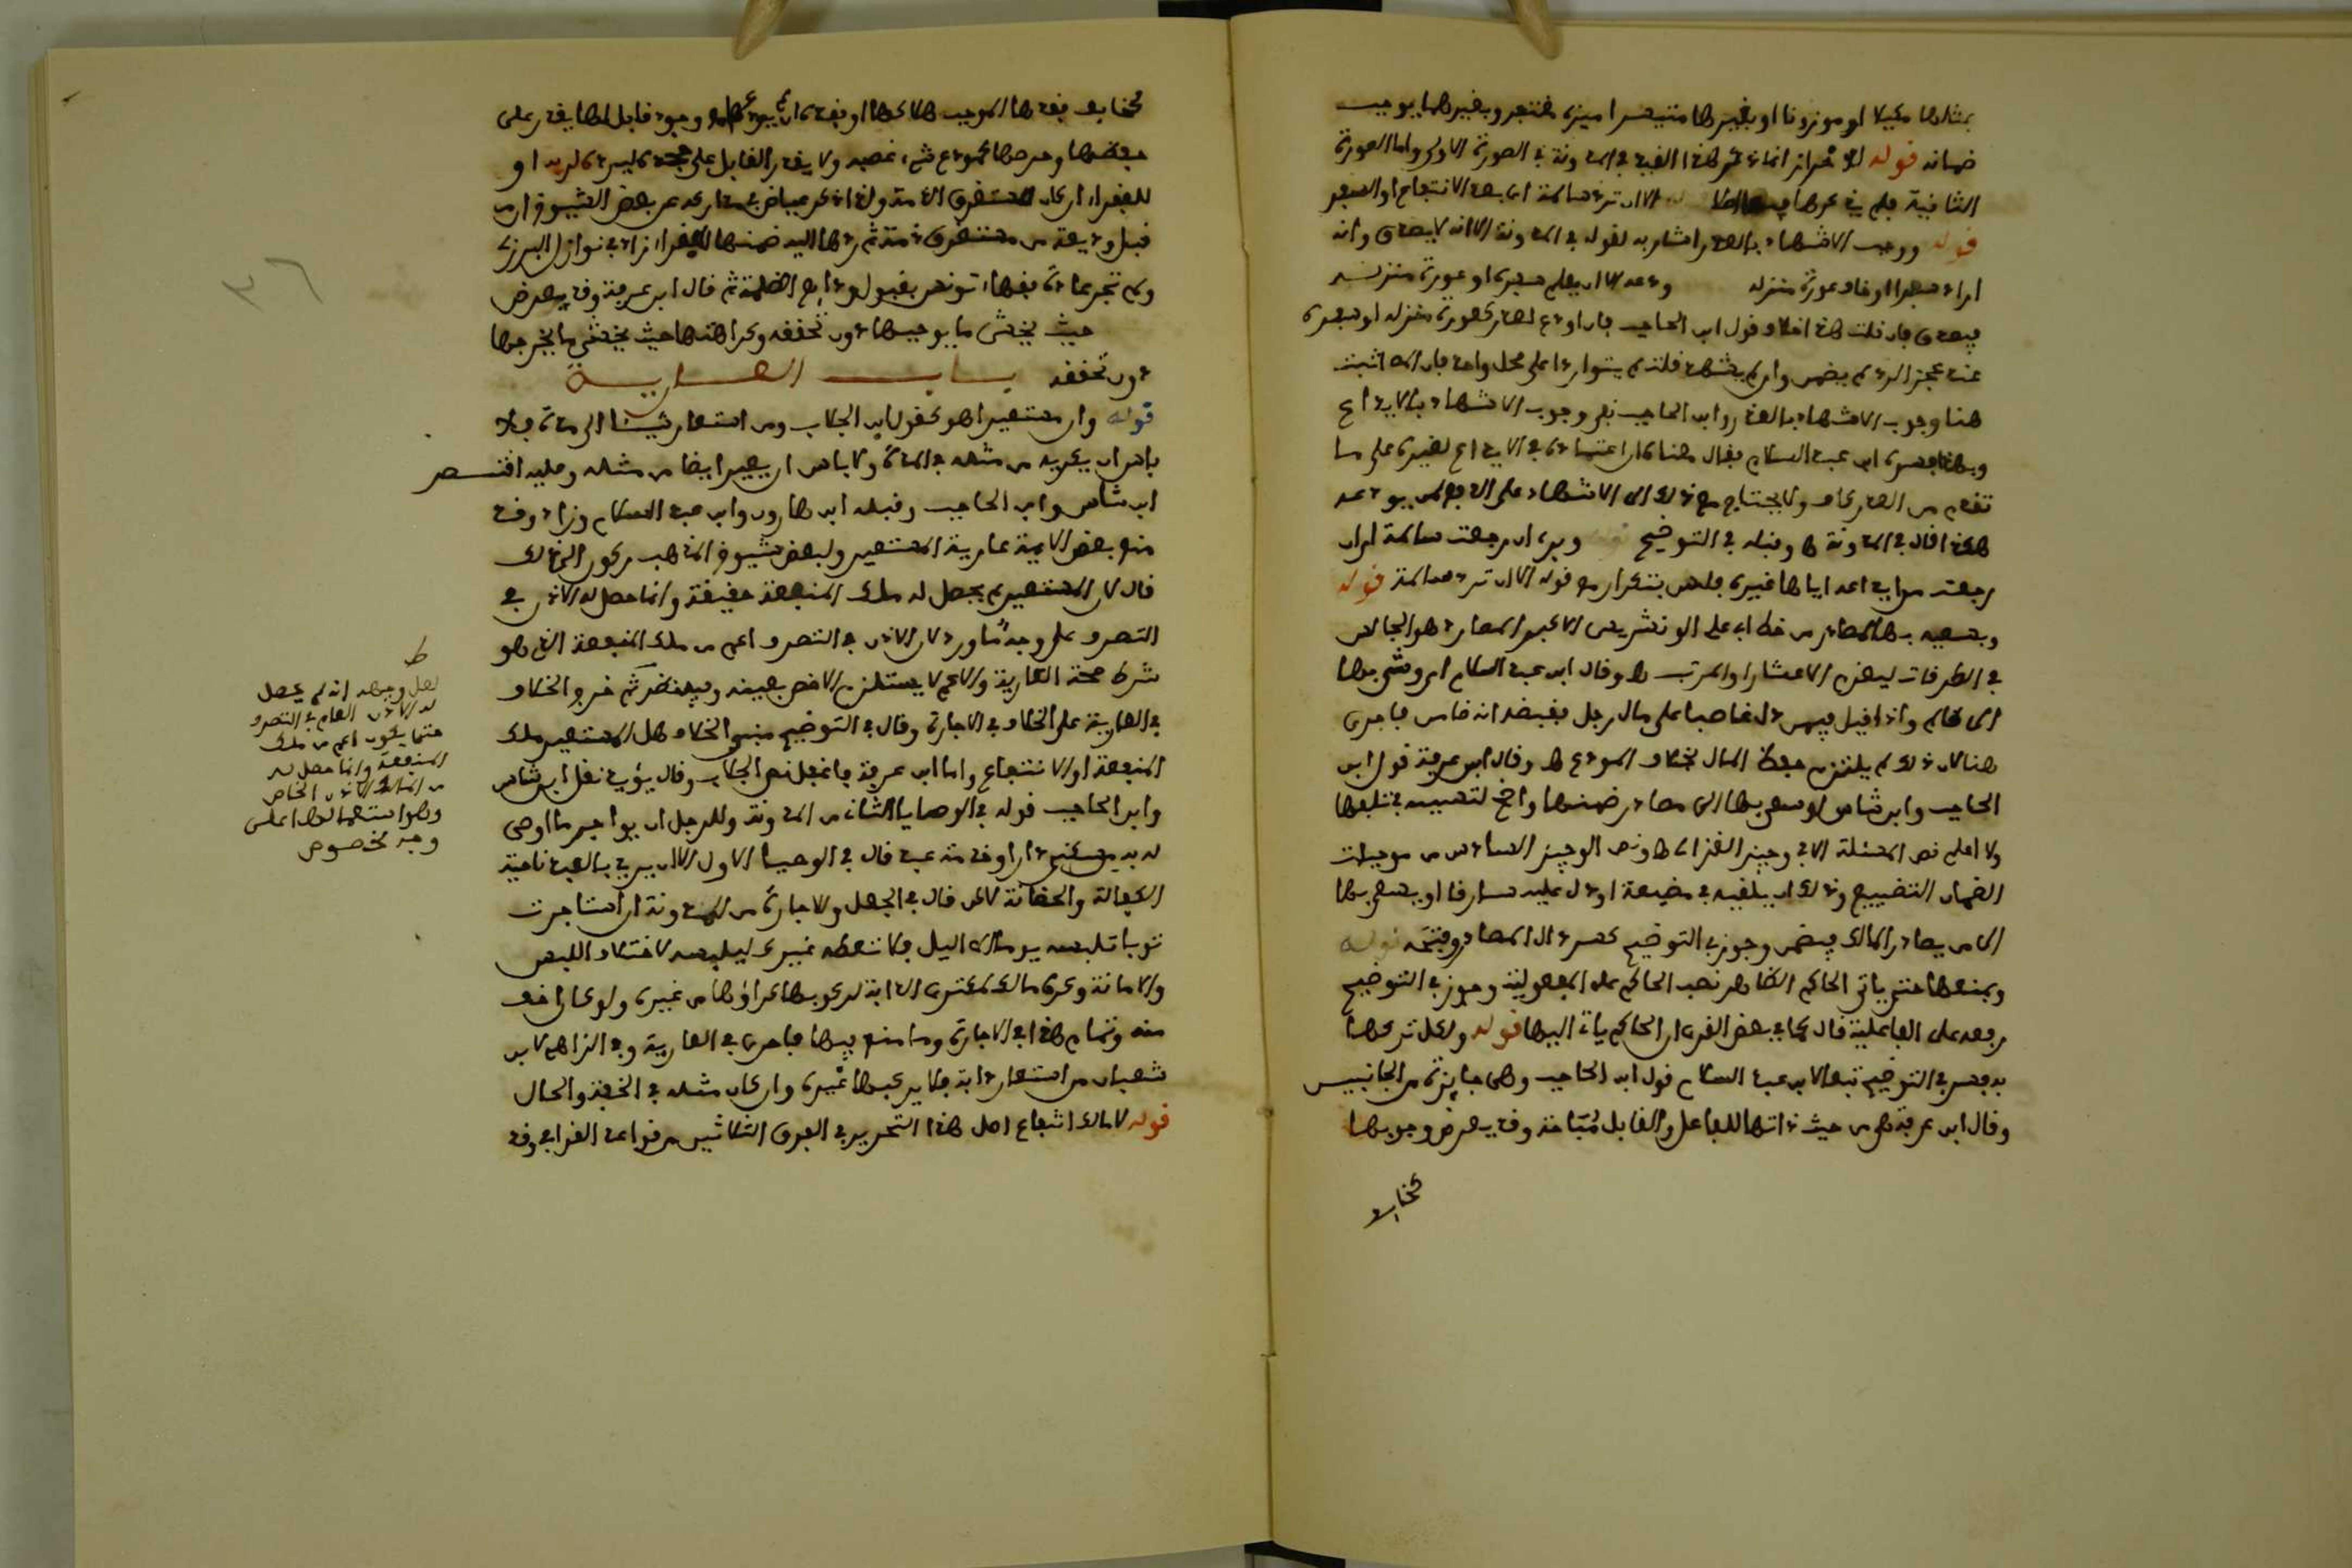 بمثلها مكيلا او موزونا او بغيرها متيسرا ميزه فنتجر وبغيرهما يوجب
ضمانه قوله الا لاحراز انما ذكر هذا القيد في المدونة في الصورة الاولى واما الصورة
الثانية فلم يذكرها الا ان ترد سالمة اي بعد الانتفاع او السفر
قوله ووجب الاشهاد بالعذر اشار به لقوله في المدونة الا انه لا يصدق وانه
اراد سفرا او خاف عورة منزله ودعه الا ان يعلم سفره او عورة منزله
فيصدق فان قلت هذا خلاف قول ابن الحاجب فان اودع لعذر كعورة منزله او سفره
عند عجز الرد لم يضمن وان لم يشهد قلت لم يتواردا على محل واحد فان الذي اثبت
هنا وجوب الاشهاد بالعذر وابن الحاجب نفى وجوب الاشهاد بالايداع
وبهذا فسره ابن عبد السلام فقال هنا كان اعتماده في الايداع لغيره على ما
تقدم من العذر كاف ولا يحتاج مع ذلك الى الاشهاد على الدفع لمن يودعه
هكذا قال في المدونة ط وقبله في التوضيح قوله وبرئ ان رجعت سالمة اي ان
رجعت من ايداعه اياها غيره فليس بتكرار مع قوله الا ان ترد سالمة قوله
وبسعيه بها لمصادر من خط ابي علي الونشريسي الاعبر المصادر هو الجالس
في الطرقات ليغرم الاعشار والمرتب ط وقال ابن عبد السلام ان وشى بها
الى ظالم واذا قيل فيمن دل غاصبا على مال رجل فقبضه انه ضامن فاحرى
هنا لان ذلك لم يلتزم حفظ المال بخلاف المودع ط وقال ابن عرفة قول ابن
الحاجب وابن شاس لو سعى بها الى مصادر ضمنها واضح لتسببه في تلفها
ولا اعلم نص المسئلة الا في وجيز الغزالي ط ونص الوجيز السادس من موجبات
الضمان التضييع وذلك ان يلقيه في مضيعة او دل عليه سارقا او يسعى بها
الى من يصادر المالك فيضمن وجوز في التوضيح كسر دال المصادر وفتحه قوله
وبمنعها حتى ياتي الحاكم الظاهر نصب الحاكم على المفعولية وجوز في التوضيح
رفعه على الفاعلية قال كما في بعض القرى ان الحاكم يأتي اليها قوله ولكل تركها
به فسر في التوضيح تبعا لابن عبد السلام قول ابن الحاجب وهي جايزة من الجانبين
وقال ابن عرفة هي من حيث ذاتها للفاعل والقابل مُبَاحة وقد يعرض وجوبها
كخايف
كخايف فقدها الموجب هلاكها او فقره ان لم يودعها مع وجود قابل لها يقدر على
حفظها وحرمتها كمودع شيء غصبه ولا يقدر القابل على جحده ليرده لربه او
للفقراء ان كان مستغرق الذمة ولذا ذكر عياض في مداركه عن بعض الشيوخ ان من
قبل وديعة من مستغرق ذمة ثم ردها اليه ضمنها للفقراء زاد في نوازل البرزلي
ولم تجر عادة فقهاء تونس بقبول ودايع الظلمة ثم قال ابن عرفة وقد يعرض
حيث يخشى ما يوجبها دون تحققه وكراهتها حيث يخشى ما يخرجها
دون تحققه باب العارية
قوله وان مستعيرا هو كقول ابن الجلاب ومن استعار شيئا الى مدة فلا
باس ان يكريه من مثله في المدة ولا باس ان يعير ايضا من مثله وعليه اقتصر
ابن شاس وابن الحاجب وقبله ابن هارون وابن عبد السلام وزاد وقد
منع بعض الايمة عارية المستعير ولبعض شيوخ المذهب ركون الى ذلك
قال لان المستعير لم يحصل له ملك المنفعة حقيقة وانما حصل له الاذن في
التصرف على وجه ما ورد لان الاذن في التصرف اعم من ملك المنفعة الذي هو
شرط صحة العارية والاعم لا يستلزم الاخص بعينه وفيه نظر ثم خرج الخلاف
في العارية على الخلاف في الاجارة وقال في التوضيح مبنى الخلاف هل المستعير ملك
المنفعة او الانتفاع واما ابن عرفة فاغفل نص الجلاب وقال يؤيد نقل ابن شاس
وابن الحاجب قوله في الوصايا الثاني من المدونة وللرجل ان يواجر ما اوصى
له به من سكنى دار او خدمة عبد قال في الوصايا الاول الا ان يريد بالعبد ناحية
الكفالة والحضانة لاكن قال في الجعل والاجارة من المدونة ان استاجرت
ثوبا تلبسه يوما الى اليل فلا تعطه غيرك ليلبسه لاختلاف اللبس
والامانة وكره مالك لمكتري الدابة لركوبها كراؤها من غيره ولو كان اخف
منه وتمام هذا في الاجارة وما منع فيها فاحرى في العارية وفي الزاهي لابن
شعبان من استعار دابة فلا يركبها غيره وان كان مثله في الخفة والحال
قوله لا مالك انتفاع اصل هذا التحرير في الفرق الثلاثين من قواعد القرافي وقد
ط
لعل وجهه انه لم يحصل
له الاذن العام في التصرف
حتى يكون اعم من ملك
المنفعة وانما حصل له
من المالك الاذن الخاص
وهو استعمالها على
وجه مخصوص